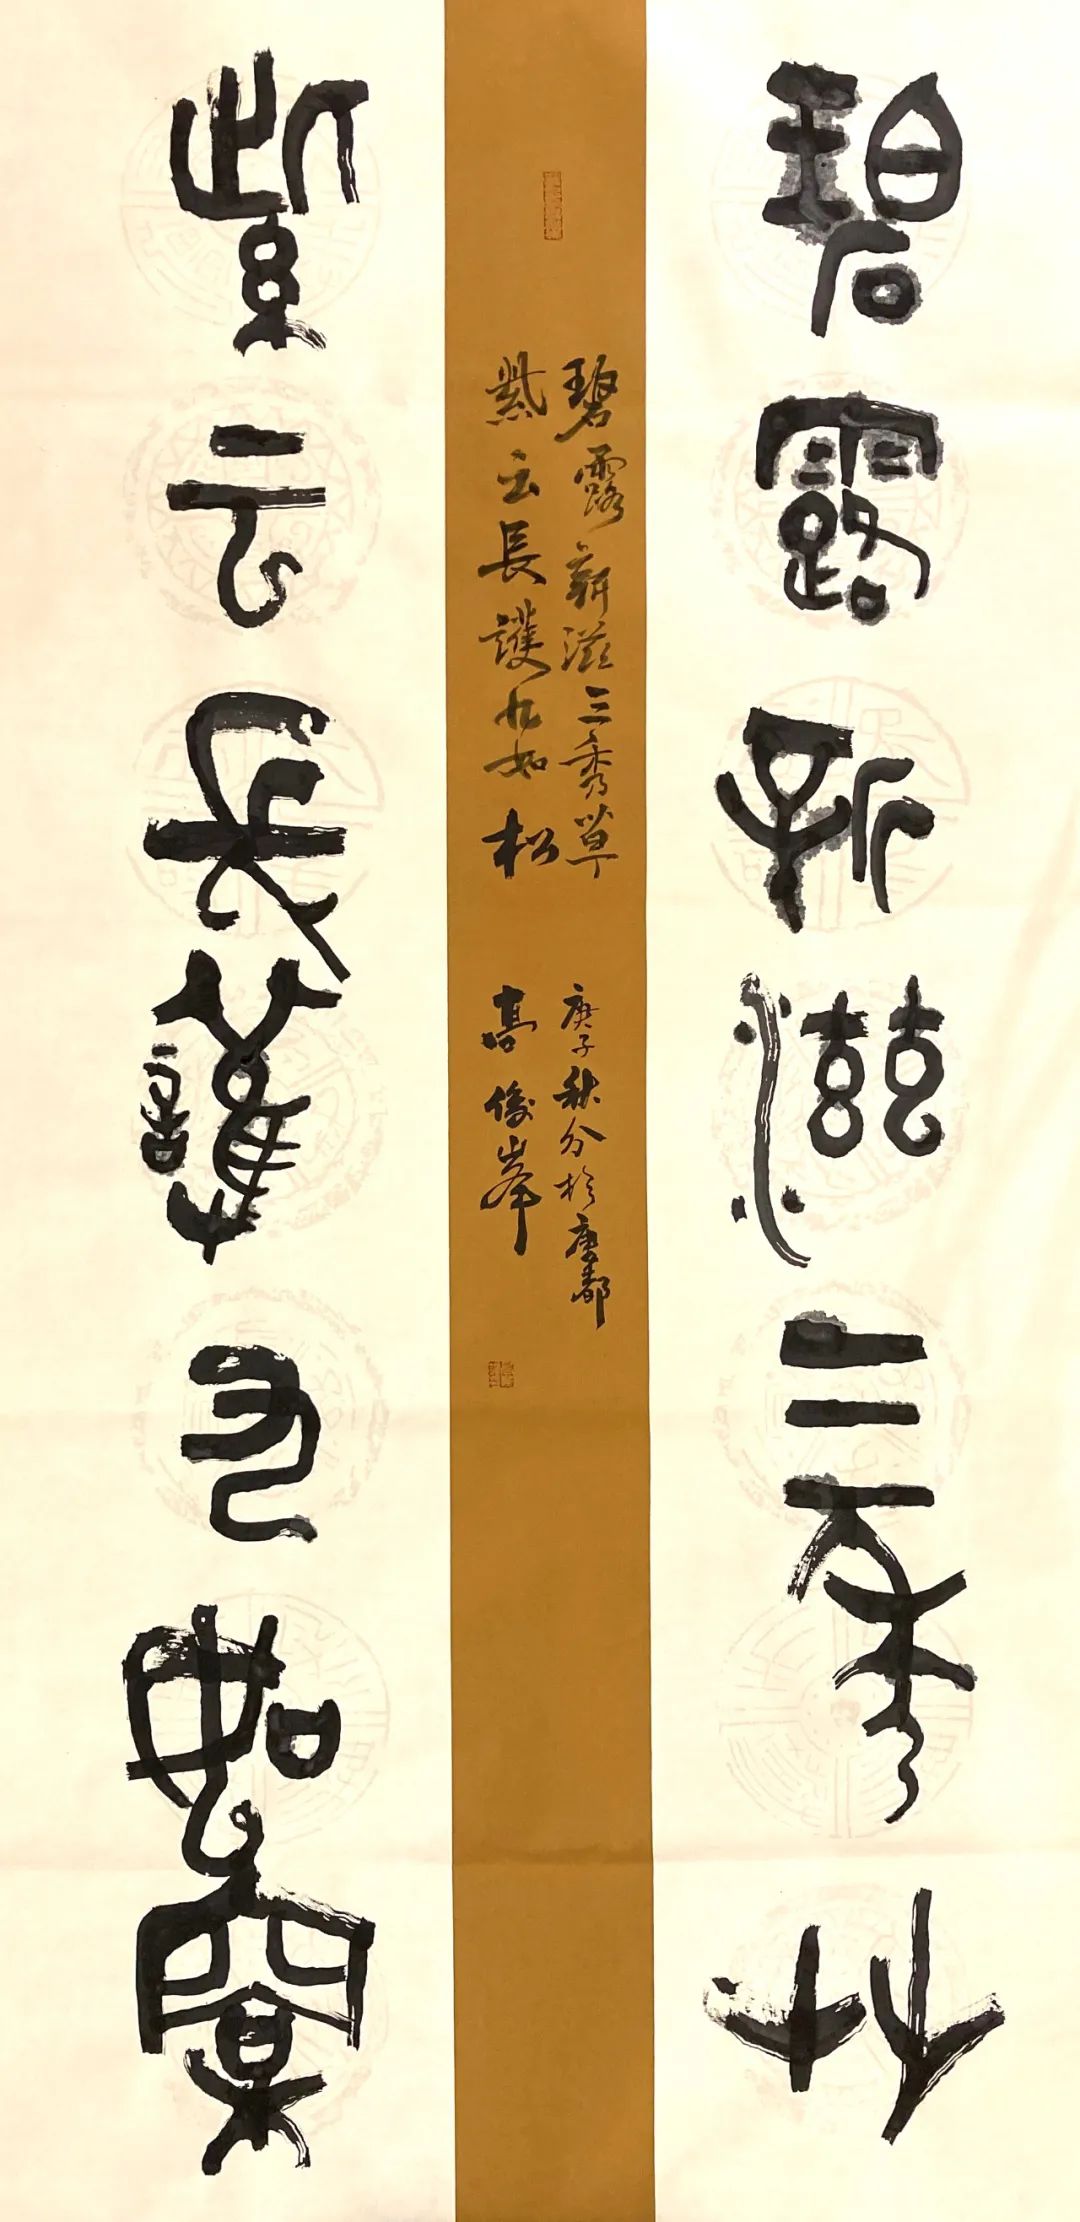 碧露新滋三秀艸
紫云長護九如松
碧露新滋三秀草
紫云長護九如松
庚子秋分於唐都
高俊峯